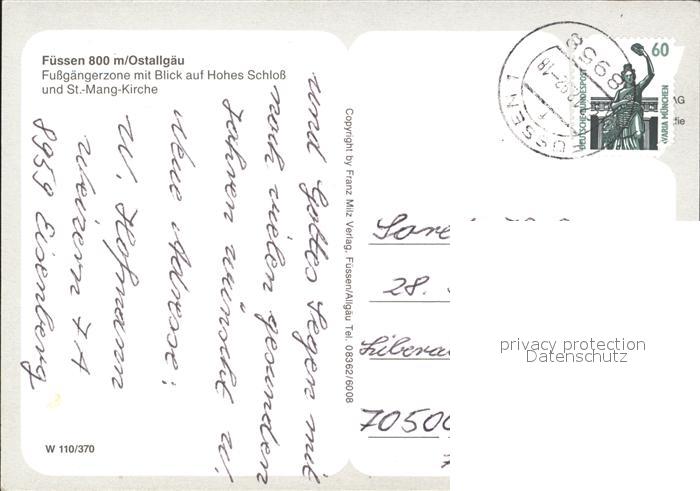 Füssen 800 m/Ostallgäu
Fußgängerzone mit Blick auf Hohes Schloß
und St.-Mang-Kirche
und Gottes Segen mit
noch vielen gesunden
Jahren wünscht W.
neue Adresse:
W. Hofmann
Weizern 7A
8959 Eisenberg
W 110/370
Copyright by Franz Milz Verlag, Füssen/Allgäu Tel. 08362/6008
8958
FÜSSEN 1
60
DEUTSCHE BUNDESPOST
BAVARIA MÜNCHEN
AG
28.
70500
privacy protection
Datenschutz